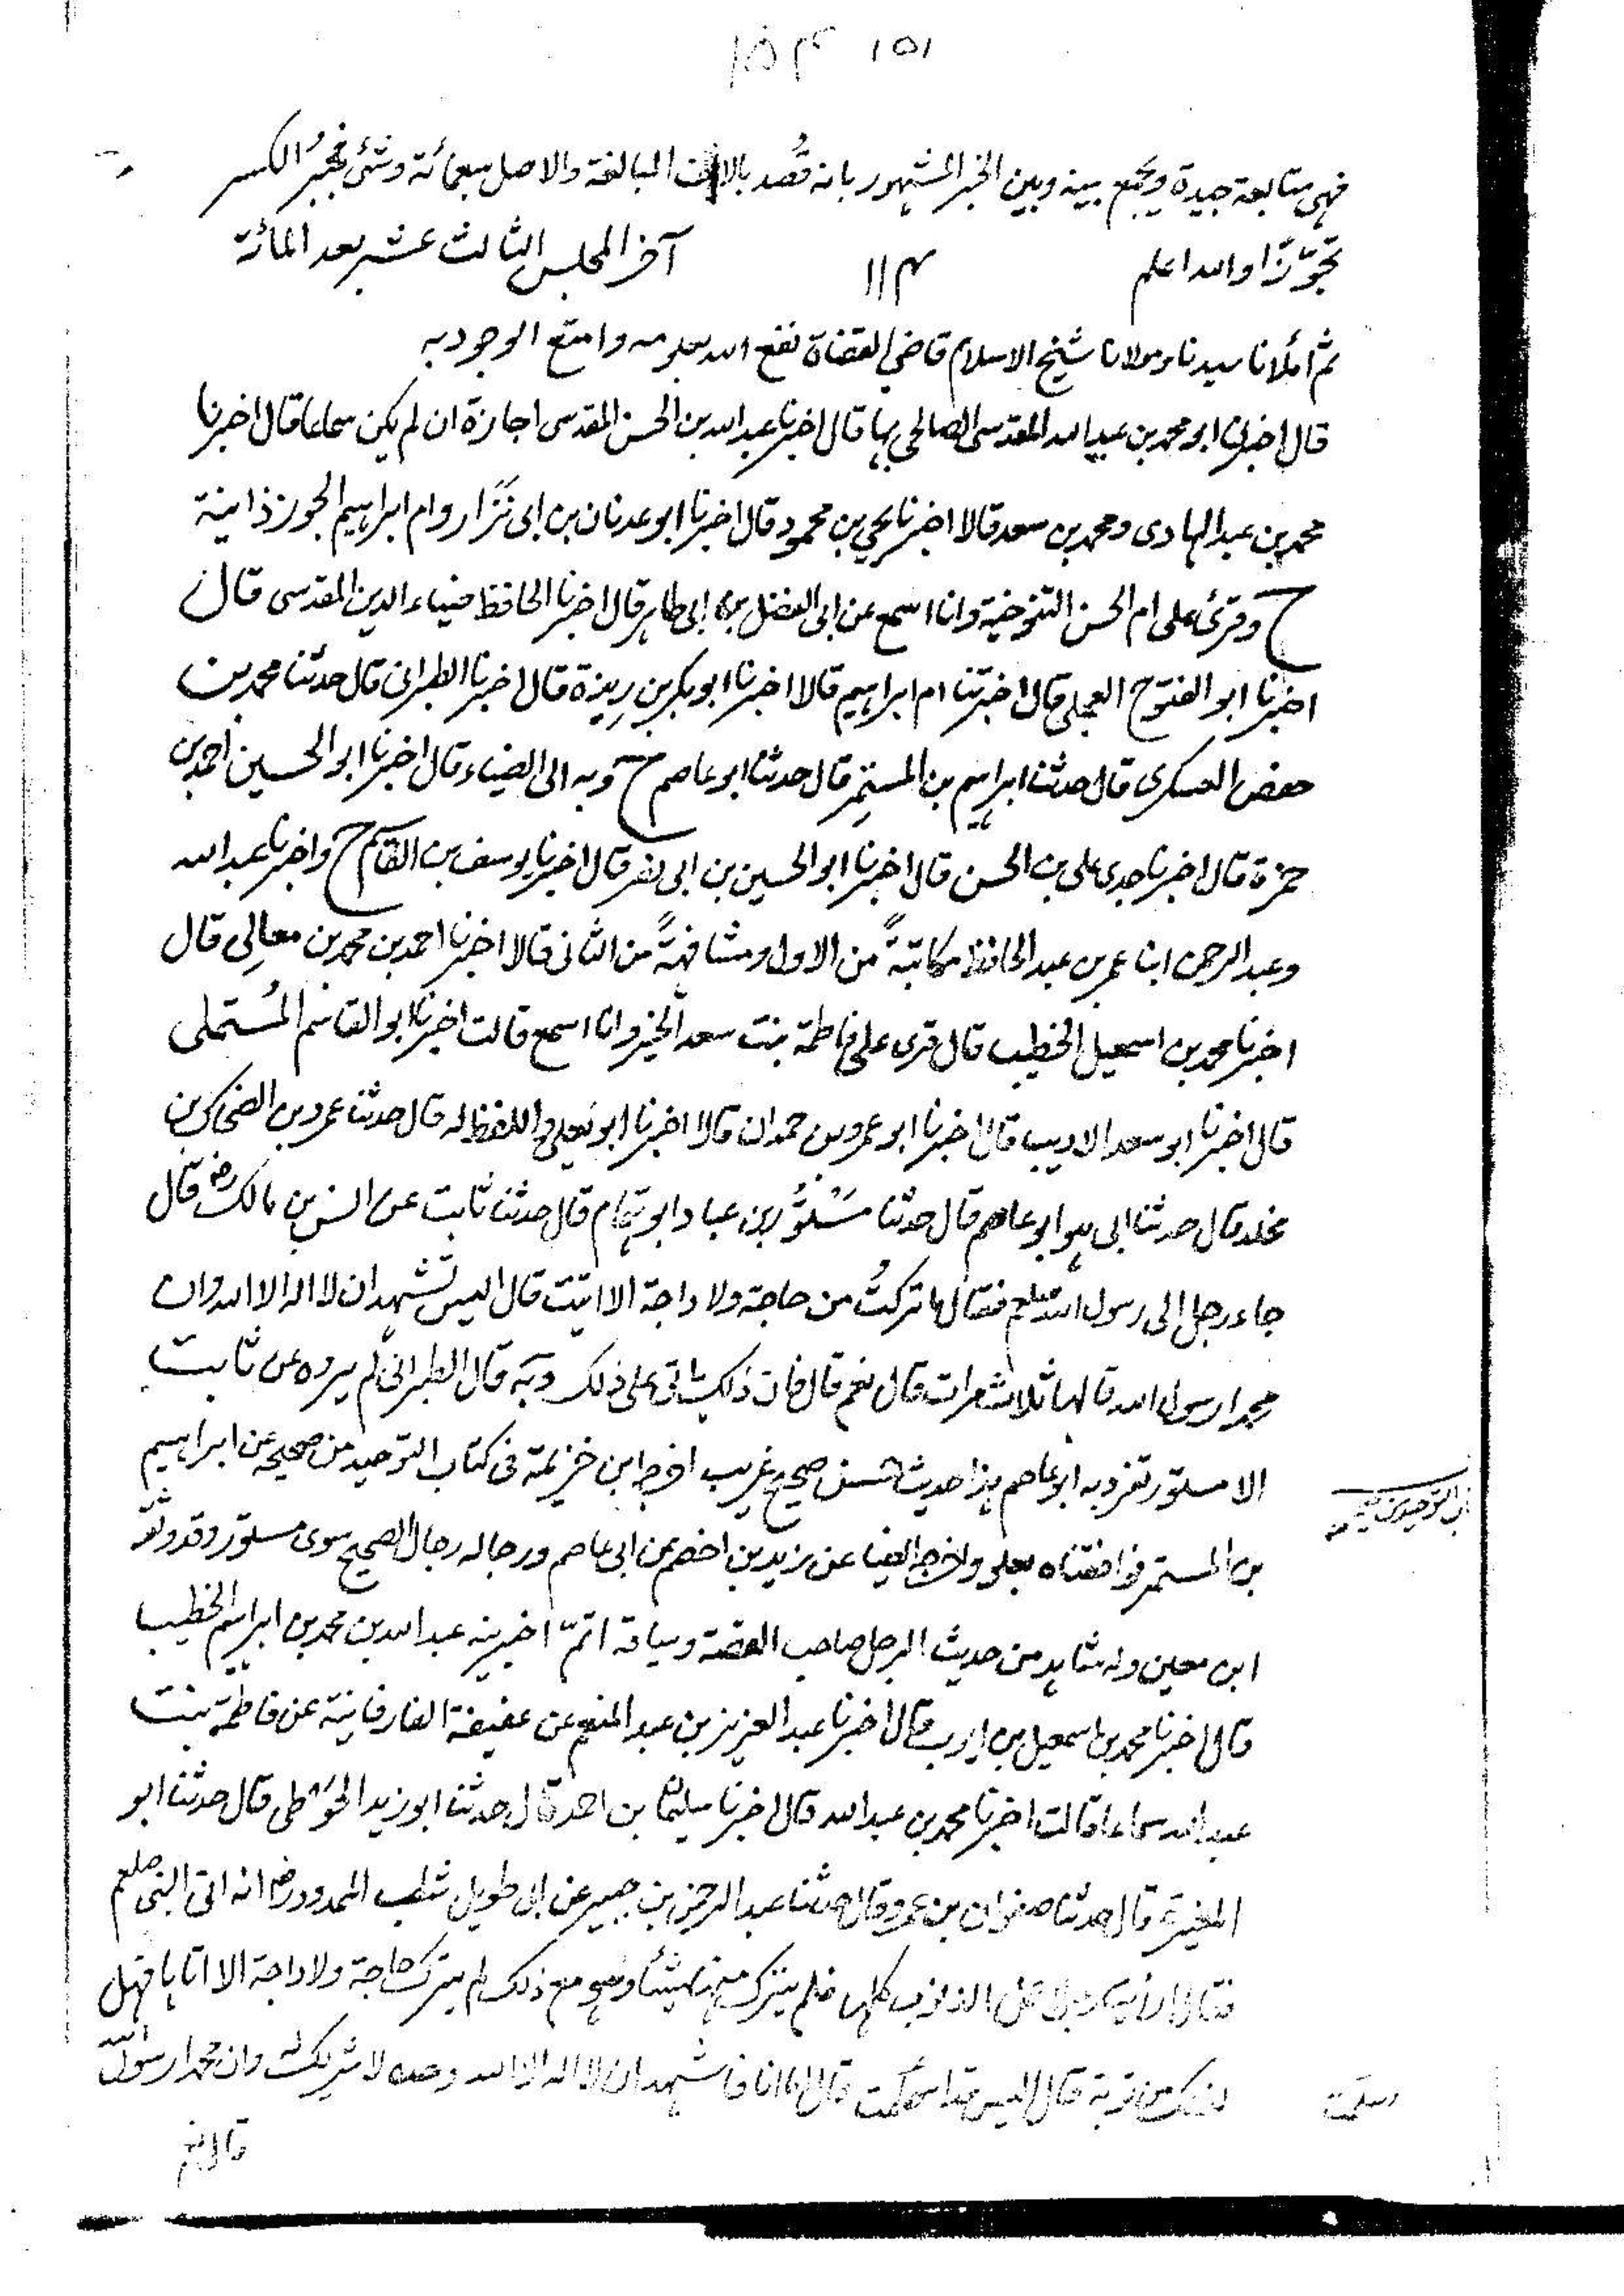 ١٥١ ١٥٤
فهي متابعة جيدة ويجمع بينه وبين الخبر المشهور بانه قُصد بالالف المبالغة والاصل سبعمائة وشئ فجُبِرُ الكسر
تجوّزًا والله اعلم ١١٤ آخر المجلس الثالث عشر بعد المائة
ثم أملانا سيدنا ومولانا شيخ الاسلام قاضي القضاة نفع الله بعلومه وامتع الوجود به
قال اخبرنا ابو محمد بن عبيد الله المقدسى الصالحى بها قال اخبرنا عبد الله بن الحسن المقدسى اجازة ان لم يكن سماعا قال اخبرنا
محمد بن عبد الهادى ومحمد بن سعد قالا اخبرنا يحي بن محمود قال اخبرنا ابو عدنان بن ابى نزار وام ابراهيم الجوزذانية
ح وقرئ على ام الحسن التنوخية وانا اسمع عن ابى الفضل بن ابى طاهر قال اخبرنا الحافظ ضياء الدين المقدسى قال
اخبرنا ابو الفتوح العجلى قال اخبرتنا ام ابراهيم قالا اخبرنا ابو بكر بن رِيذة قال اخبرنا الطبرانى قال حدثنا محمد بن
حفص العسكرى قال حدثنا ابراهيم بن المستمِر قال حدثنا ابو عاصم ح وبه الى الضياء قال اخبرنا ابو الحسين احمد بن
حمزة قال اخبرنا جدى على بن الحسن قال اخبرنا ابو الحسين بن ابى نصر قال اخبرنا يوسف بن القاسم ح واخبرنا عبد الله
وعبد الرحمن ابنا عمر بن عبد الحافظ مكاتبةً من الاول ومشافهةً من الثانى قالا اخبرنا احمد بن محمد بن معالِى قال
اخبرنا محمد بن اسمعيل الخطيب قال قرى على فاطمة بنت سعد الخير وانا اسمع قالت اخبرنا ابو القاسم المُستملى
قال اخبرنا ابو سعد الاديب قال اخبرنا ابو عمرو بن حمدان قالا اخبرنا ابو يعلى واللفظ له قال حدثنا عمرو بن الضحاك بن
مخلد قال حدثنا ابى هو ابو عاصم قال حدثنا مَسْتُوْر بن عباد ابو همام قال حدثنا ثابت عن انس بن مالك رض قال
جاء رجل الى رسول الله صلعم فقال ما تركتُ من حاجة ولا داجة الا اتيت قال اليس تشهد ان لا اله الا الله وان
محمدا رسول الله قالها ثلاث مرات قال نعم قال فان ذلك ياتى على ذلك وبه قال الطبرانى لم يروه عن ثابت
الا مستور تفرد به ابو عاصم هذا حديث حسن صحيح غريب اخرجه ابن خزيمة فى كتاب التوحيد من صحيحه عن ابراهيم
بن المستمر فوافقناه بعلو واخرجه ايضا عن زيد بن اخضم عن ابى عاصم ورجاله رجال الصحيح سوى مستور وقد وثقه
ابن معين وله شاهد من حديث الرجل صاحب القصة وسياقه اتمّ اخبرنيه عبد الله بن محمد بن ابراهيم الخطيب
قال اخبرنا محمد بن اسمعيل بن ايوب قال اخبرنا عبد العزيز بن عبد المنعم عن عفيفة الفارفانية عن فاطمة بنت
عبد الله سماعا قالت اخبرنا محمد بن عبد الله قال اخبرنا سليمان بن احمد قال حدثنا ابو زيد الحَوْطى قال حدثنا ابو
المغيرة قال حدثنا صفوان بن عمرو قال حدثنا عبد الرحمن بن جبير عن ابى طويل شطب الممدود رض انه اتى النبى صلعم
فقال ارأيت رجلا عمل الذنوب كلها فلم يترك منها شيئا وهو مع ذلك لم يترك حاجة ولا داجة الا اتاها فهل
لذلك من توبة قال اليس قد اسلمت قال اما انا فاشهد ان لا اله الا الله وحده لا شريك له وان محمدا رسول الله
قال نعم